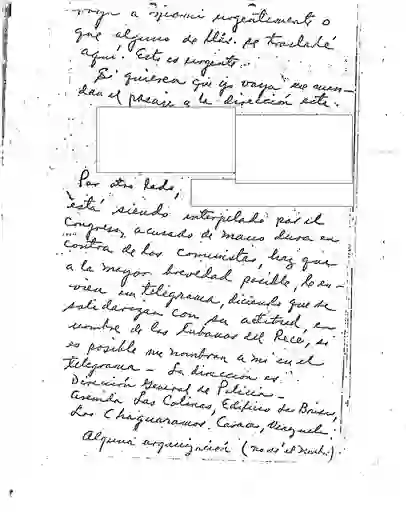 vaya a Miami urgentemente o
que alguno de Uds. se traslade
aquí. Esto es urgente.
Si quieren que yo vaya me man-
dan el pasaje a la dirección esta:
Por otro lado,
está siendo interpelado por el
Congreso, acusado de mano dura en
contra de los comunistas, hay que
a la mayor brevedad posible, le en-
vien un telegrama, diciendo que se
solidarizan con su actitud, en
nombre de los Cubanos del Rece, si
es posible me nombran a mi en el
telegrama - La dirección es:
Dirección General de Policia -
Avenida Las Colinas, Edificio
Los Chaguaramos. Caracas, Venezuela.
Alguna organización (no sé el nombre).